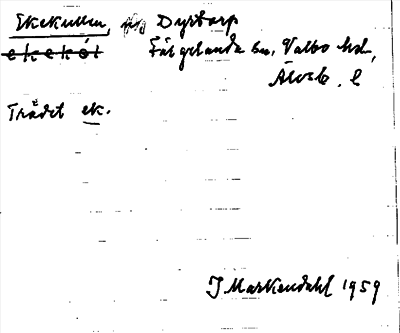 Ekekullen, på Dyrtorp
ekekól Färgelanda sn, Valbo hd,
Älvsb. l
Trädet ek.
J Markendahl 1959